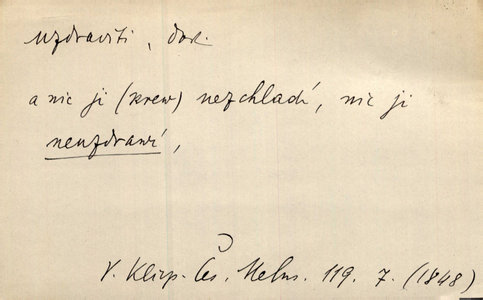 uzdraviti, dok.
a nic ji (krew) nezchladí, nic ji
neuzdrawí,
V. Klicp. Čes. Melus. 119. 7. (1848)